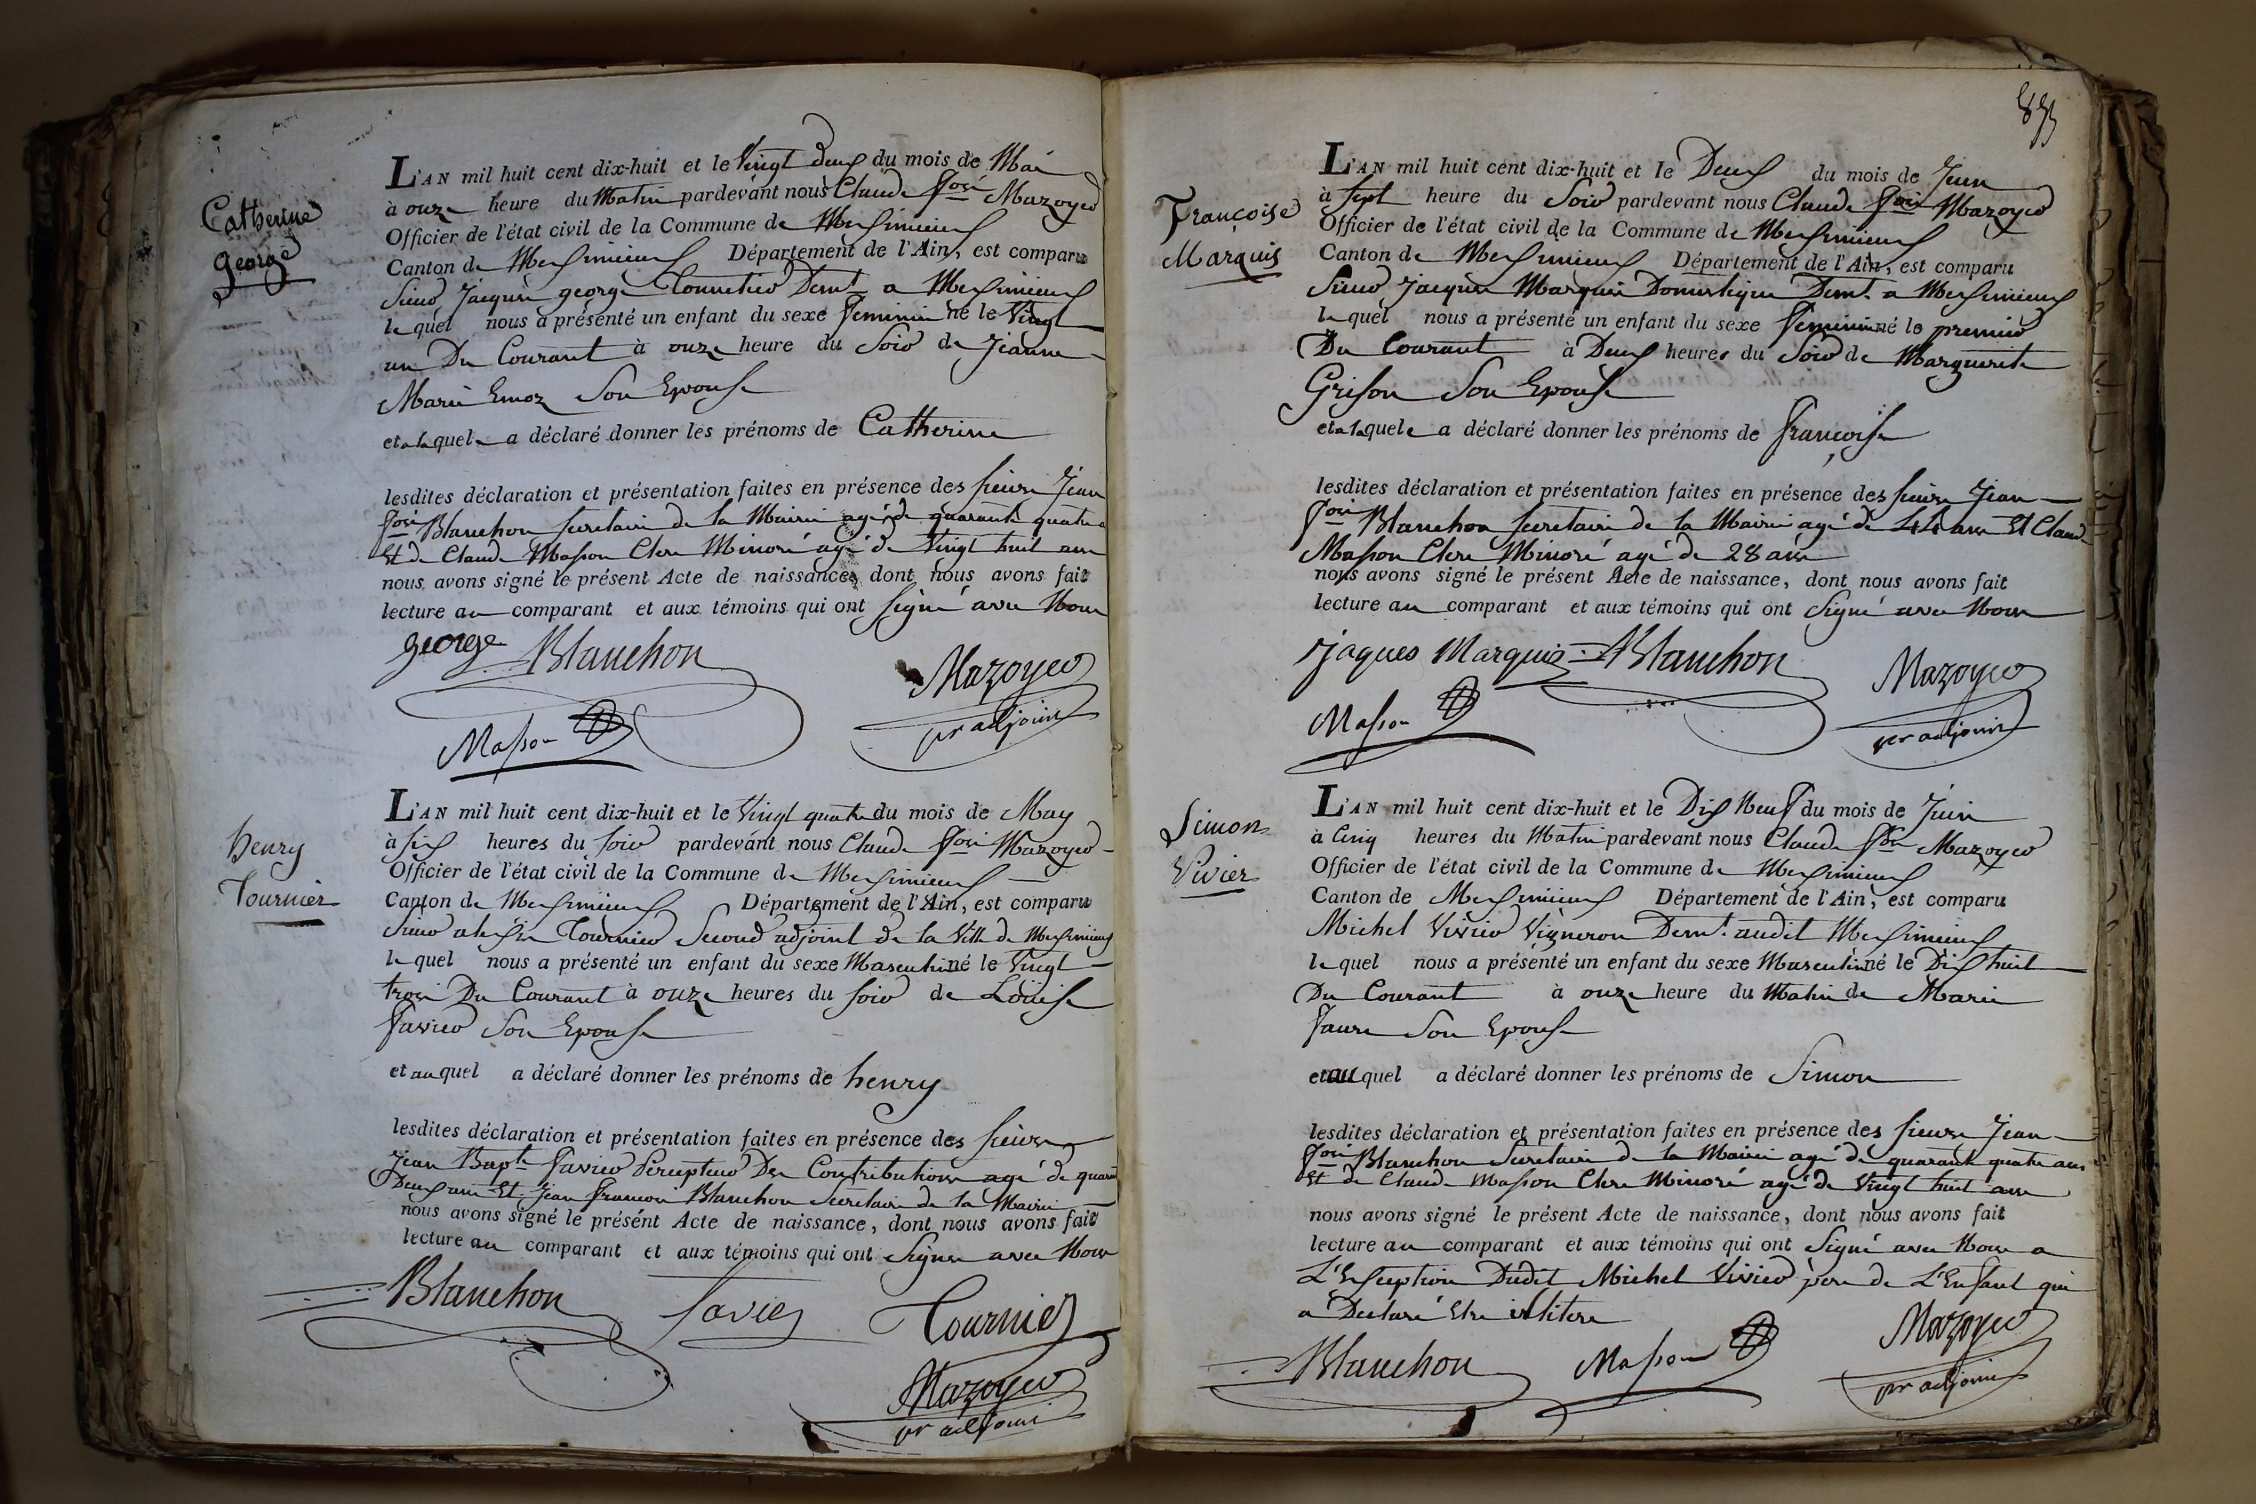 Catherine
george
L'AN mil huit cent dix-huit et le Vingt deux du mois de Mai
à onze heure du Matin pardevant nous Claude Fçois Mazoyer
Officier de l'état civil de la Commune de Meximieux
Canton de Meximieux Département de l'Ain, est comparu
Sieur Jacques george Demt a Meximieux
le quel nous a présenté un enfant du sexe feminin né le Vingt
un Du Courant à onze heure du Soir de Jeanne
Marie Emoz Son Epouse
et a laquele a déclaré donner les prénoms de Catherine
lesdites déclaration et présentation faites en présence des sieurs Jean
fçois Blanchon secretaire de la Mairie agé de quarante quatre a
Et de Claude Masson Clerc Minoré agé de Vingt huit ans
nous avons signé le présent Acte de naissance, dont nous avons fait
lecture au comparant et aux témoins qui ont signé avec Nous
george Blanchon
Mazoyer
Masson
pr adjoint
henry
Tournier
L'AN mil huit cent dix-huit et le Vingt quatre du mois de May
à six heures du soir pardevant nous Claude fçois Mazoyer
Officier de l'état civil de la Commune de Meximieux
Canton de Meximieux Département de l'Ain, est comparu
Sieur alexis Tournier Second adjoint de la Ville de Meximieux
le quel nous a présenté un enfant du sexe Masculin né le Vingt
trois Du Courant à onze heures du soir de Loüise
favier Son Epouse
et auquel a déclaré donner les prénoms de henry
lesdites déclaration et présentation faites en présence des sieurs
Jean Bapte favier Percepteur Des Contributions agé de quarante
Deux ans Et Jean francois Blanchon Secretaire de la Mairie
nous avons signé le présént Acte de naissance, dont nous avons fait
lecture au comparant et aux témoins qui ont Signer avec Nous
Blanchon favier Tournier
Mazoyer
pr adjoint
Françoise
Marquis
L'AN mil huit cent dix-huit et le Deux du mois de Juin
à sept heure du Soir pardevant nous Claude fçois Mazoyer
Officier de l'état civil de la Commune de Meximieux
Canton de Meximieux Département de l'Ain, est comparu
Sieur Jacques Marquis Domestique Demt. a Meximieux
le quel nous a présenté un enfant du sexe feminin né le premier
Du Courant à Deux heures du Soir de Marguerite
Grison Son Epouse
et a laquele a déclaré donner les prénoms de françoise
lesdites déclaration et présentation faites en présence des sieurs Jean
fçois Blanchon secretaire de la Mairie agé de 44 ans Et Claude
Masson Clerc Minoré agé de 28 ans
nous avons signé le présent Acte de naissance, dont nous avons fait
lecture au comparant et aux témoins qui ont Signé avec Nous
Jaques Marquis Blanchon
Mazoyer
Masson
pr adjoint
Simon
Vivier
L'AN mil huit cent dix-huit et le Dix Neuf du mois de Juin
à Cinq heures du Matin pardevant nous Claude fçois Mazoyer
Officier de l'état civil de la Commune de Meximieux
Canton de Meximieux Département de l'Ain, est comparu
Michel Vivier Vigneron Demt. audit Meximieux
le quel nous a présenté un enfant du sexe Masculin né le Dix huit
Du Courant à onze heure du Matin de Marie
faure Son Epouse
et auquel a déclaré donner les prénoms de Simon
lesdites déclaration et présentation faites en présence des sieurs Jean
fçois Blanchon Secretaire de la Mairie agé de quarante quatre ans
Et de Claude Masson Clerc Minoré agé de Vingt huit ans
nous avons signé le présent Acte de naissance, dont nous avons fait
lecture au comparant et aux témoins qui ont Signé avec Nous a
L'Exception Dudit Michel Vivier père de L'Enfant qui
a Declaré Etre illitere
Blanchon Masson Mazoyer
pr adjoint